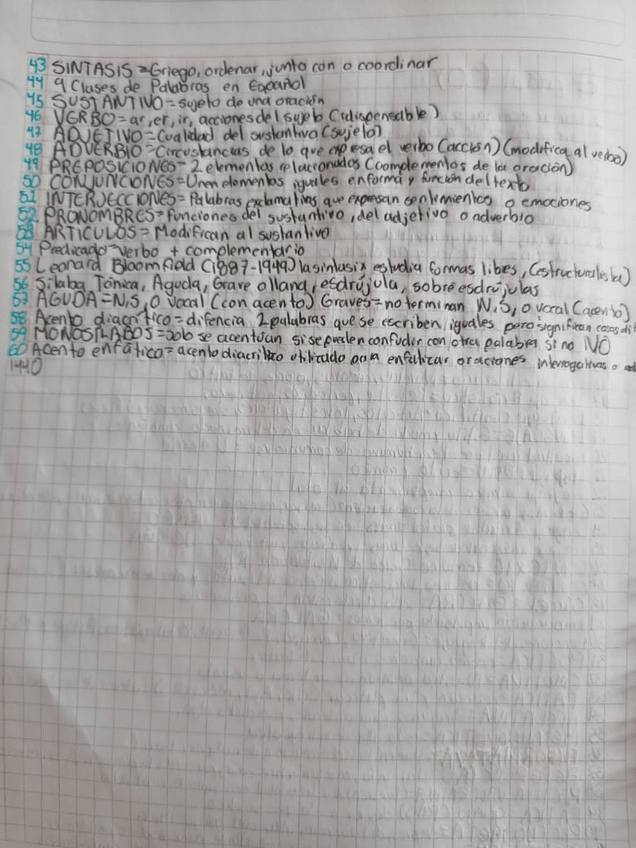 43 SINTASIS = Griego, ordenar, junto con o coordinar
44 9 Clases de Palabras en Español
45 SUSTANTIVO = sujeto de una oración
46 VERBO = ar, er, ir, acciones del sujeto (idispensable)
47 ADJETIVO = Cualidad del sustantivo (sujeto)
48 ADVERBIO = Circustancias de lo que expresa el verbo (acción) (modifica al verbo)
49 PREPOSICIONES = 2 elementos relacionados (complementos de la oración)
50 CONJUNCIONES = Unen elementos iguales en forma y función del texto
51 INTERJECCIONES = Palabras exclamativas que expresan sentimientos o emociones
52 PRONOMBRES = funciones del sustantivo, del adjetivo o adverbio
53 ARTICULOS = Modifican al sustantivo
54 Predicado = verbo + complementario
55 Leonard Bloomfield (1887-1949) la sintasis estudia formas libres, (estructuralista)
56 Silaba Tónica, Aguda, Grave o llana, esdrújula, sobre esdrújulas
57 AGUDA = N, S, o vocal (con acento) Graves = no terminan N, S, o vocal (acento)
58 Acento diacrítico = difencia 2 palabras que se escriben iguales pero significan cosas
59 MONOSILABOS = solo se acentúan si se pueden confudir con otra palabra si no NO
60 Acento enfático = acento diacritico utilizado para enfatizar oraciones interrogativas o
1440